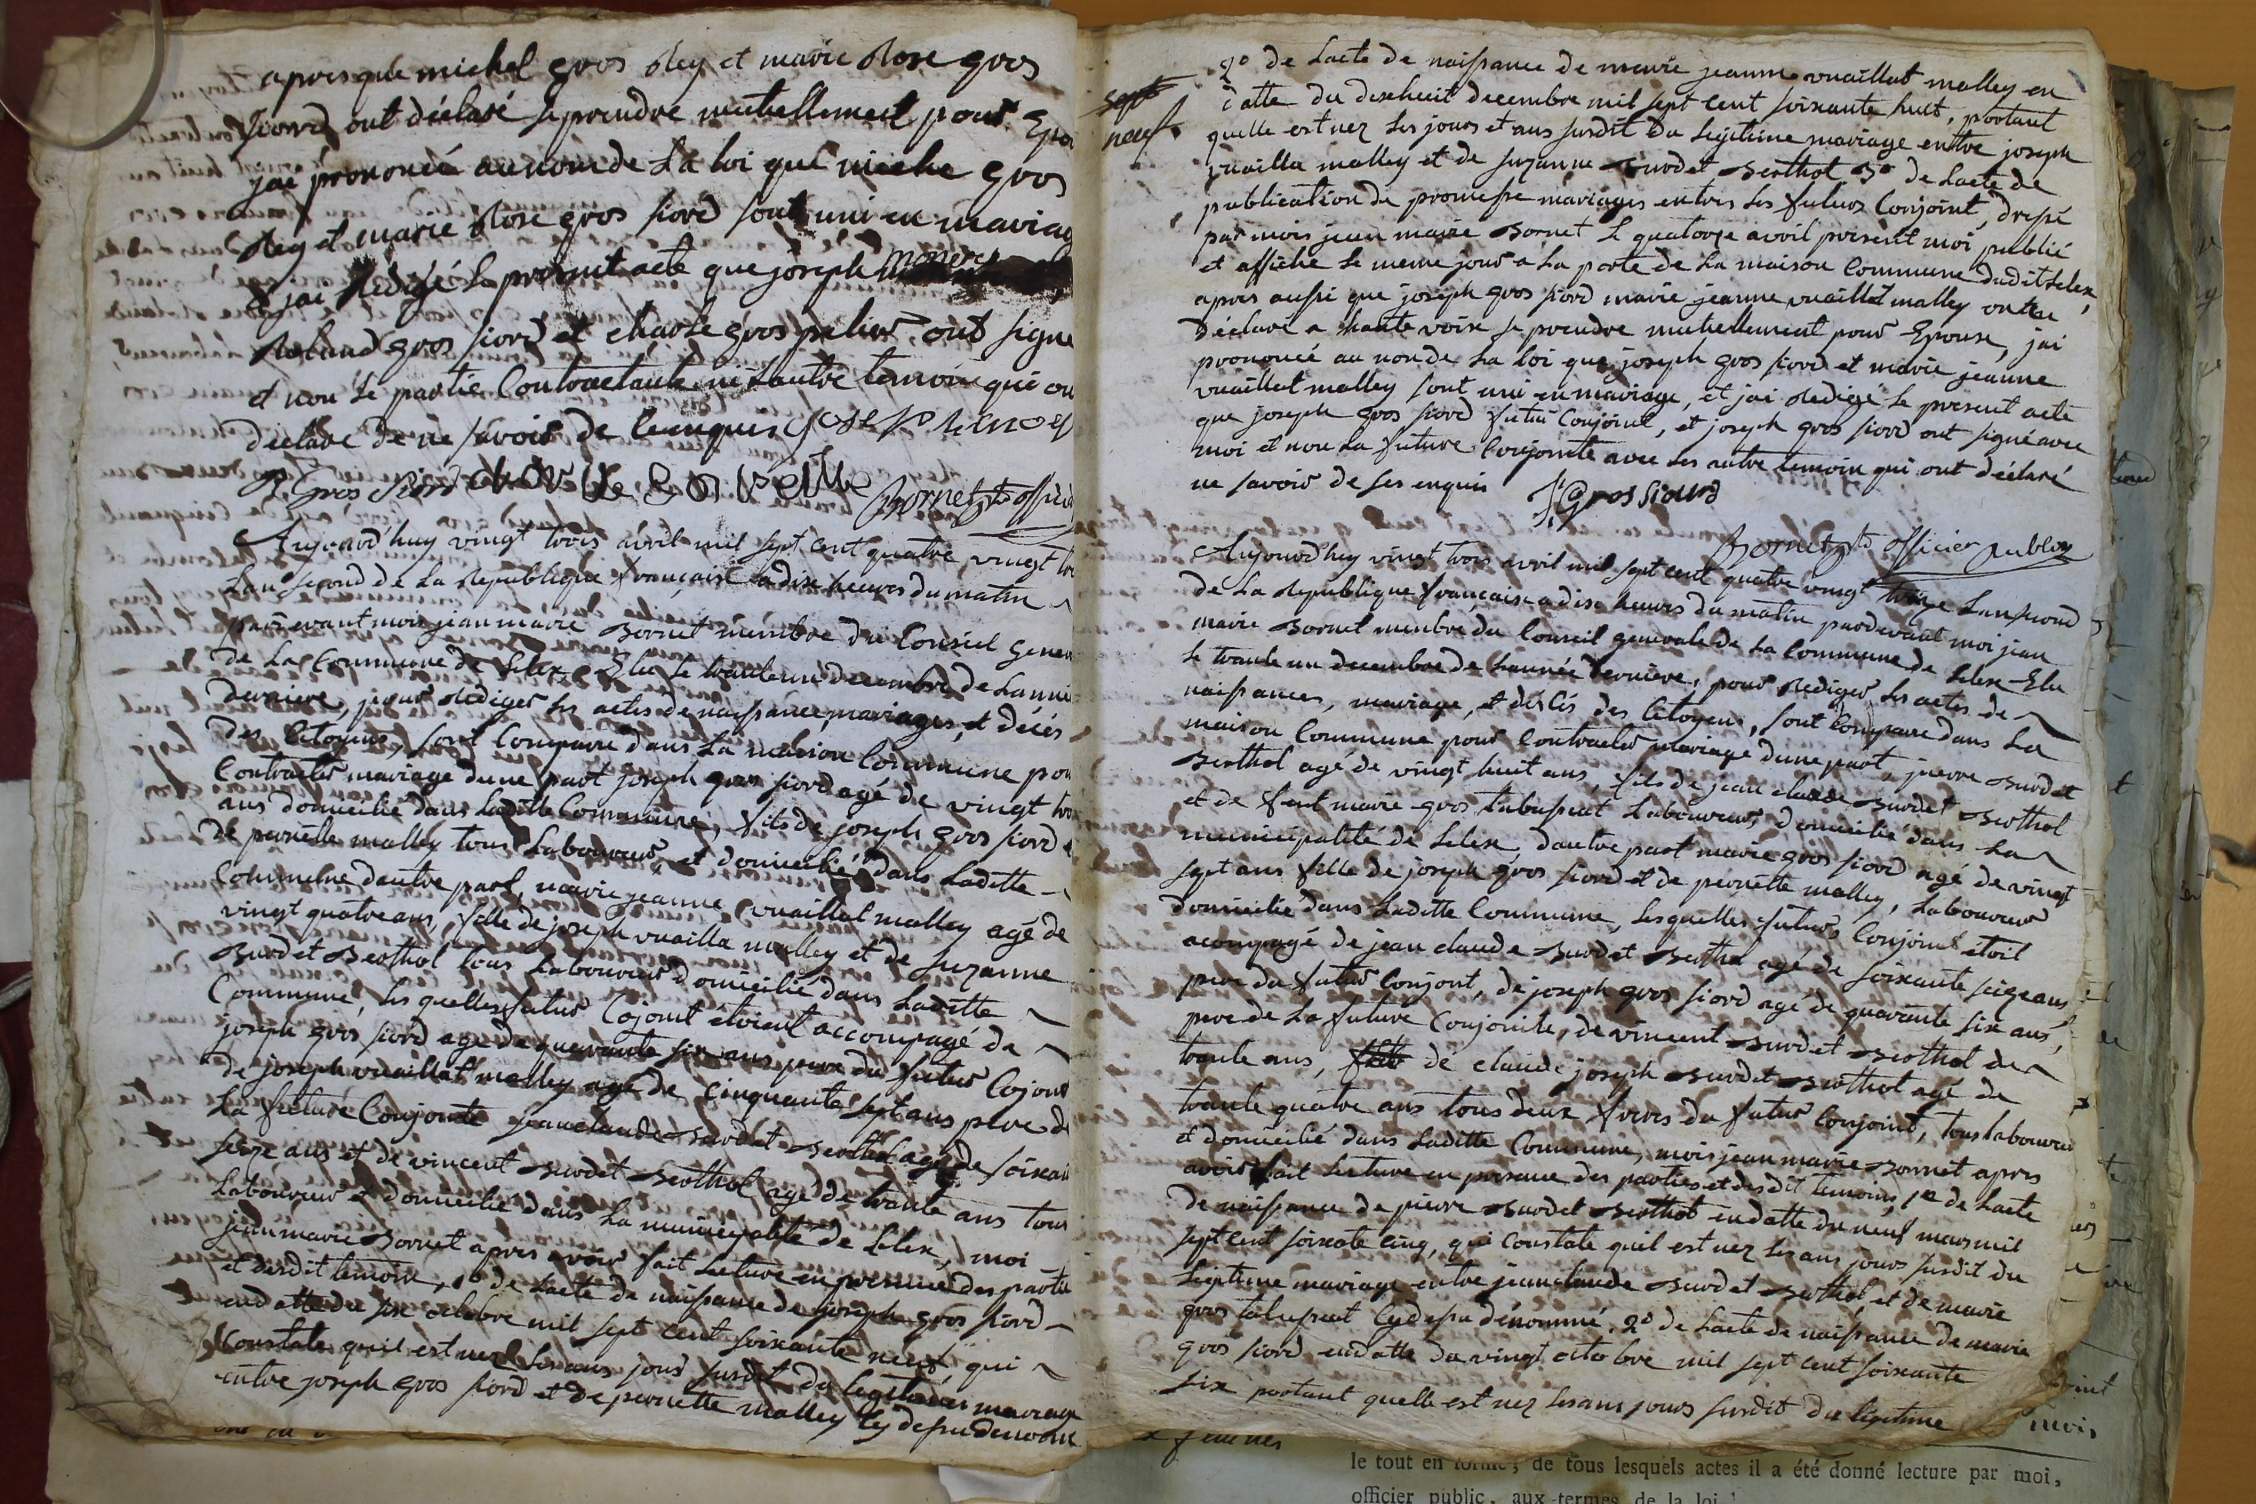 apres que michel gros Rey et marie Rose gros
fiord ont déclaré se prendre mutuellement pour Epou
jai prononcé au nom de La loi que miche gros
Rey et marie Rose gros fiord sont uni en mariag
& jai Redigé Le present acte que joseph monerey
Roland gros fiord et charle gros pelier ont signe
et non Le partie Contractante ni Lautre temoin qui on
declare de ne savoir de Ce enquis josehp monerey
R gros fiord charle Gros pellie Bornet Sts officie
Aujourd'huy vingt trois avril mil sept cent quatre vingt tre
Lan second de La Republique française a dix heures du matin
par devant mois jean marie Bornet membre du Conseil gener
de La Commune de Lelex, Elu Le trante un decembre de Lanné
derniere, pour Rediger Les actes de naissance mariages, et décés
des Citoyens, sont Comparu dans La maison Commune pou
Contracter mariage dune part joseph gros fiord agé de vingt troi
ans domicilié dans Laditte Commune, fils de joseph gros fiord e
de pernette malley tous Laboureurs et domicilié dans Laditte
Commune dautre part, marie jeanne vuaillat malley agé de
vingt quatre ans, fille de joseph vuailla malley et de suzanne
Burdet Berthol tous Laboureur domicilié dans Laditte
Commune, Les quelles futur Cojoint étoient accompagé de
joseph gros fiord agé de quarante six ans pere du futur Cojoint
de joseph vuaillat malley agé de cinquante sept ans pere de
La future Conjointe jean claude Burdet Berthol agé de soixan
seize ans et de vincent Burdet Berthol agé de trante ans tous
Laboureur et domicilié dans La municipalité de Lelex, moi
jean marie Bornet apres avoir fait Lecture en presence des partie
et desdit temoin, 1º de Lacte de naissance de joseph gros fiord
en datte du six octobre mil sept cent soixante neuf qui
Constate quil est nez Les ans jour susdit du legitimes mariage
entre joseph gros fiord et de pernette malley Cy dessu denomé
sept
neuf
2º de Lacte de naissance de marie jeanne vuaillat malley en
datte du dixhuit decembre mil sept cent soixante huit, portant
quelle est nez Les jours et ans susdit du Legitime mariage entre joseph
vuailla malley et de suzanne Burdet Berthol 3º de Lacte de
publication de promesse mariages entres Les futurs Conjoint, dressé
par mois jean marie Bornet Le quatorze avril present moi, publié
et affiché Le meme jour a La porte de La maison Commune dudit Lelex,
apres aussi que joseph gros fiord marie jeanne vuaillat malley onteu
déclaré a haute voix se prendre mutuellement pour Epoux, jai
prononcé au non de La loi que joseph gros fiord et marie jeanne
vuaillat malley sont uni en mariage, et jai Redigé Le present acte
que joseph gros fiord futur Conjoint, et joseph gros fiord ont signé avec
moi et non La future Conjointe avec Les autre temoin qui ont déclaré
ne savoir de Ses enquis J Gros fiourd
Bornet Sts officier publique
Aujourd'huy vingt trois avril mil sept cent quatre vingt treize Lan second
de La Republique française a dix heures du matin pardevant moi jean
marie Bornet membre du Conseil generale de La Commune de Lelex Elu
Le trante un decembre de Lannée derniere, pour Rediger Les actes de
naissances, mariage, et décés des Citoyens, sont Comparu dans La
maison Commune pour Contracter mariage dune part, pierre Burdet
Berthol agé de vingt huit ans, fils de jean claude Burdet Berthol
et de feut marie gros tabussiat Laboureur, domicilié dans La
municipalité de Lelex, dautre part marie gros fiord agé de vingt
sept ans fille de joseph gros fiord et de pernette malley, Laboureur
domicilié dans Laditte Commune, Lesquelles futurs Conjoint étoit
acompagé de jean claude Burdet Berthol agé de soixante seize ans,
pere du futur Conjont, de joseph gros fiord agé de quarante six ans,
pere de La future Conjointe, de vincent Burdet Berthol de
trante ans, de claude joseph Burdet Berthol agé de
trante quatre ans tous deux freres du futur Conjoint, tous Laboureu
et domicilié dans Laditte Commune, mois jean marie Bornet apres
avoir fait Lecture en presence des parties et desdit temoins, 1º de Lacte
de naissance de pierre Burdet Berthol en datte du neuf mars mil
sept cent soixante cinq, qui Constate quil est nez Les ans jours susdit du
Legitime mariage entre jean claude Burdet Berthol, et de marie
gros tabussiat Cy dessu dénommé. 2º de Lacte de naissance de marie
gros fiord en datte du vingt octobre mil sept cent soixante
six portant quelle est nez Les ans jours susdit du legitime
moi,
femmes
le tout en forme; de tous lesquels actes il a été donné lecture par moi,
officier public, aux termes de la loi